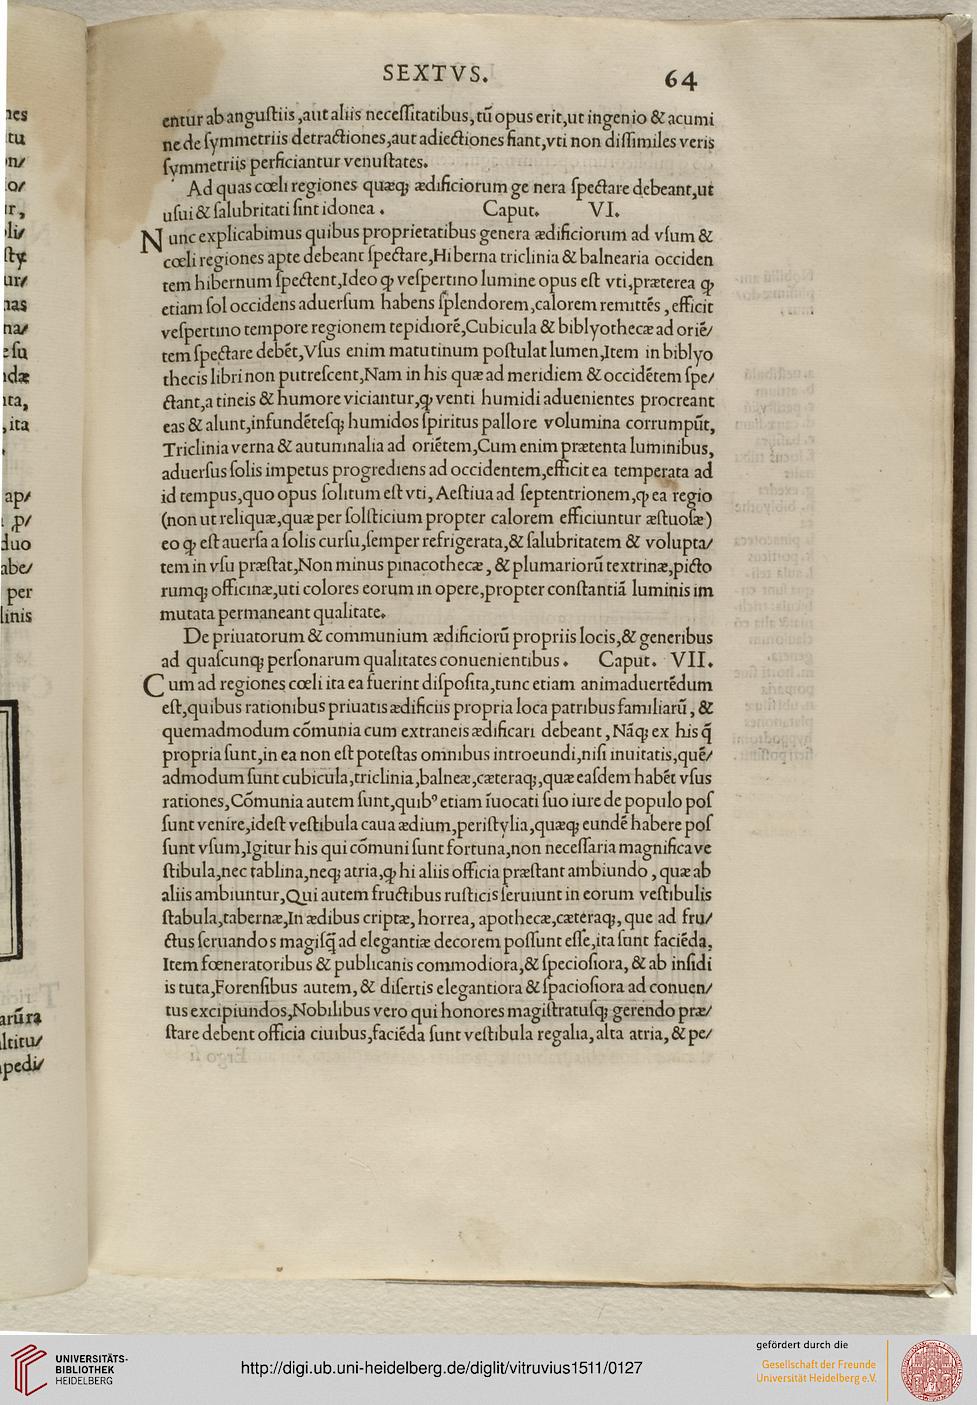 SEXTVS.
64
entur ab anguſtiis,aut aliis neceſſitatibus,tū opus erit,ut ingenio & acumi
ne de ſymmetriis detractiones,aut adiectiones fiant,vti non diſſimiles veris
ſymmetriis perficiantur venuſtates.
Ad quas cœli regiones quæq; ædificiorum ge nera ſpectare debeant,ut
uſui & ſalubritati ſint idonea. Caput. VI.
Nunc explicabimus quibus proprietatibus genera ædificiorum ad vſum &
cœli regiones apte debeant ſpectare,Hiberna triclinia & balnearia occiden
tem hibernum ſpectent,Ideo ꝙ veſpertino lumine opus eſt vti,præterea ꝙ
etiam ſol occidens aduerſum habens ſplendorem,calorem remittēs, efficit
veſpertino tempore regionem tepidiorē,Cubicula & biblyothecæ ad oriē/
tem ſpectare debēt,Vſus enim matutinum poſtulat lumen,Item in biblyo
thecis libri non putreſcent,Nam in his quæ ad meridiem & occidētem ſpe/
ctant,a tineis & humore viciantur,ꝙ venti humidi aduenientes procreant
eas & alunt,infundēteſq; humidos ſpiritus pallore volumina corrumpūt,
Triclinia verna & autumnalia ad oriētem,Cum enim prætenta luminibus,
aduerſus ſolis impetus progrediens ad occidentem,efficit ea temperata ad
id tempus,quo opus ſolitum eſt vti, Aeſtiua ad ſeptentrionem,ꝙ ea regio
(non ut reliquæ,quæ per ſolſticium propter calorem efficiuntur æſtuoſæ)
eo ꝙ eſt auerſa a ſolis curſu,ſemper refrigerata,& ſalubritatem & volupta/
tem in vſu præſtat,Non minus pinacothecæ, & plumariorū textrinæ,picto
rumq; officinæ,uti colores eorum in opere,propter conſtantiā luminis im
mutata permaneant qualitate.
De priuatorum & communium ædificiorū propriis locis,& generibus
ad quaſcunq; perſonarum qualitates conuenientibus. Caput. VII.
Cum ad regiones cœli ita ea fuerint diſpoſita,tunc etiam animaduertēdum
eſt,quibus rationibus priuatis ædificiis propria loca patribus familiarū, &
quemadmodum cōmunia cum extraneis ædificari debeant, Nāq; ex his q̄
propria ſunt,in ea non eſt poteſtas omnibus introeundi,niſi inuitatis,quē/
admodum ſunt cubicula,triclinia,balneæ,cæteraq;,quæ eaſdem habēt vſus
rationes,Cōmunia autem ſunt,quibꝰ etiam īuocati ſuo iure de populo poſ
ſunt venire,ideſt veſtibula caua ædium,periſtylia,quæq; eundē habere poſ
ſunt vſum,Igitur his qui cōmuni ſunt fortuna,non neceſſaria magnifica ve
ſtibula,nec tablina,neq; atria,ꝙ hi aliis officia præſtant ambiundo, quæ ab
aliis ambiuntur,Qui autem fructibus ruſticis ſeruiunt in eorum veſtibulis
ſtabula,tabernæ,In ædibus criptæ, horrea, apothecæ,cæteraq;, que ad fru/
ctus ſeruandos magiſq̄ ad elegantiæ decorem poſſunt eſſe,ita ſunt faciēda,
Item fœneratoribus & publicanis commodiora,& ſpecioſiora, & ab inſidi
is tuta,Forenſibus autem, & diſertis elegantiora & ſpacioſiora ad conuen/
tus excipiundos,Nobilibus vero qui honores magiſtratuſq; gerendo præ/
ſtare debent officia ciuibus,faciēda ſunt veſtibula regalia, alta atria, & pe/
UNIVERSITÄTS-
BIBLIOTHEK
HEIDELBERG
http://digi.ub.uni-heidelberg.de/diglit/vitruvius1511/0127
gefördert durch die
Gesellschaft der Freunde
Universität Heidelberg e.V.